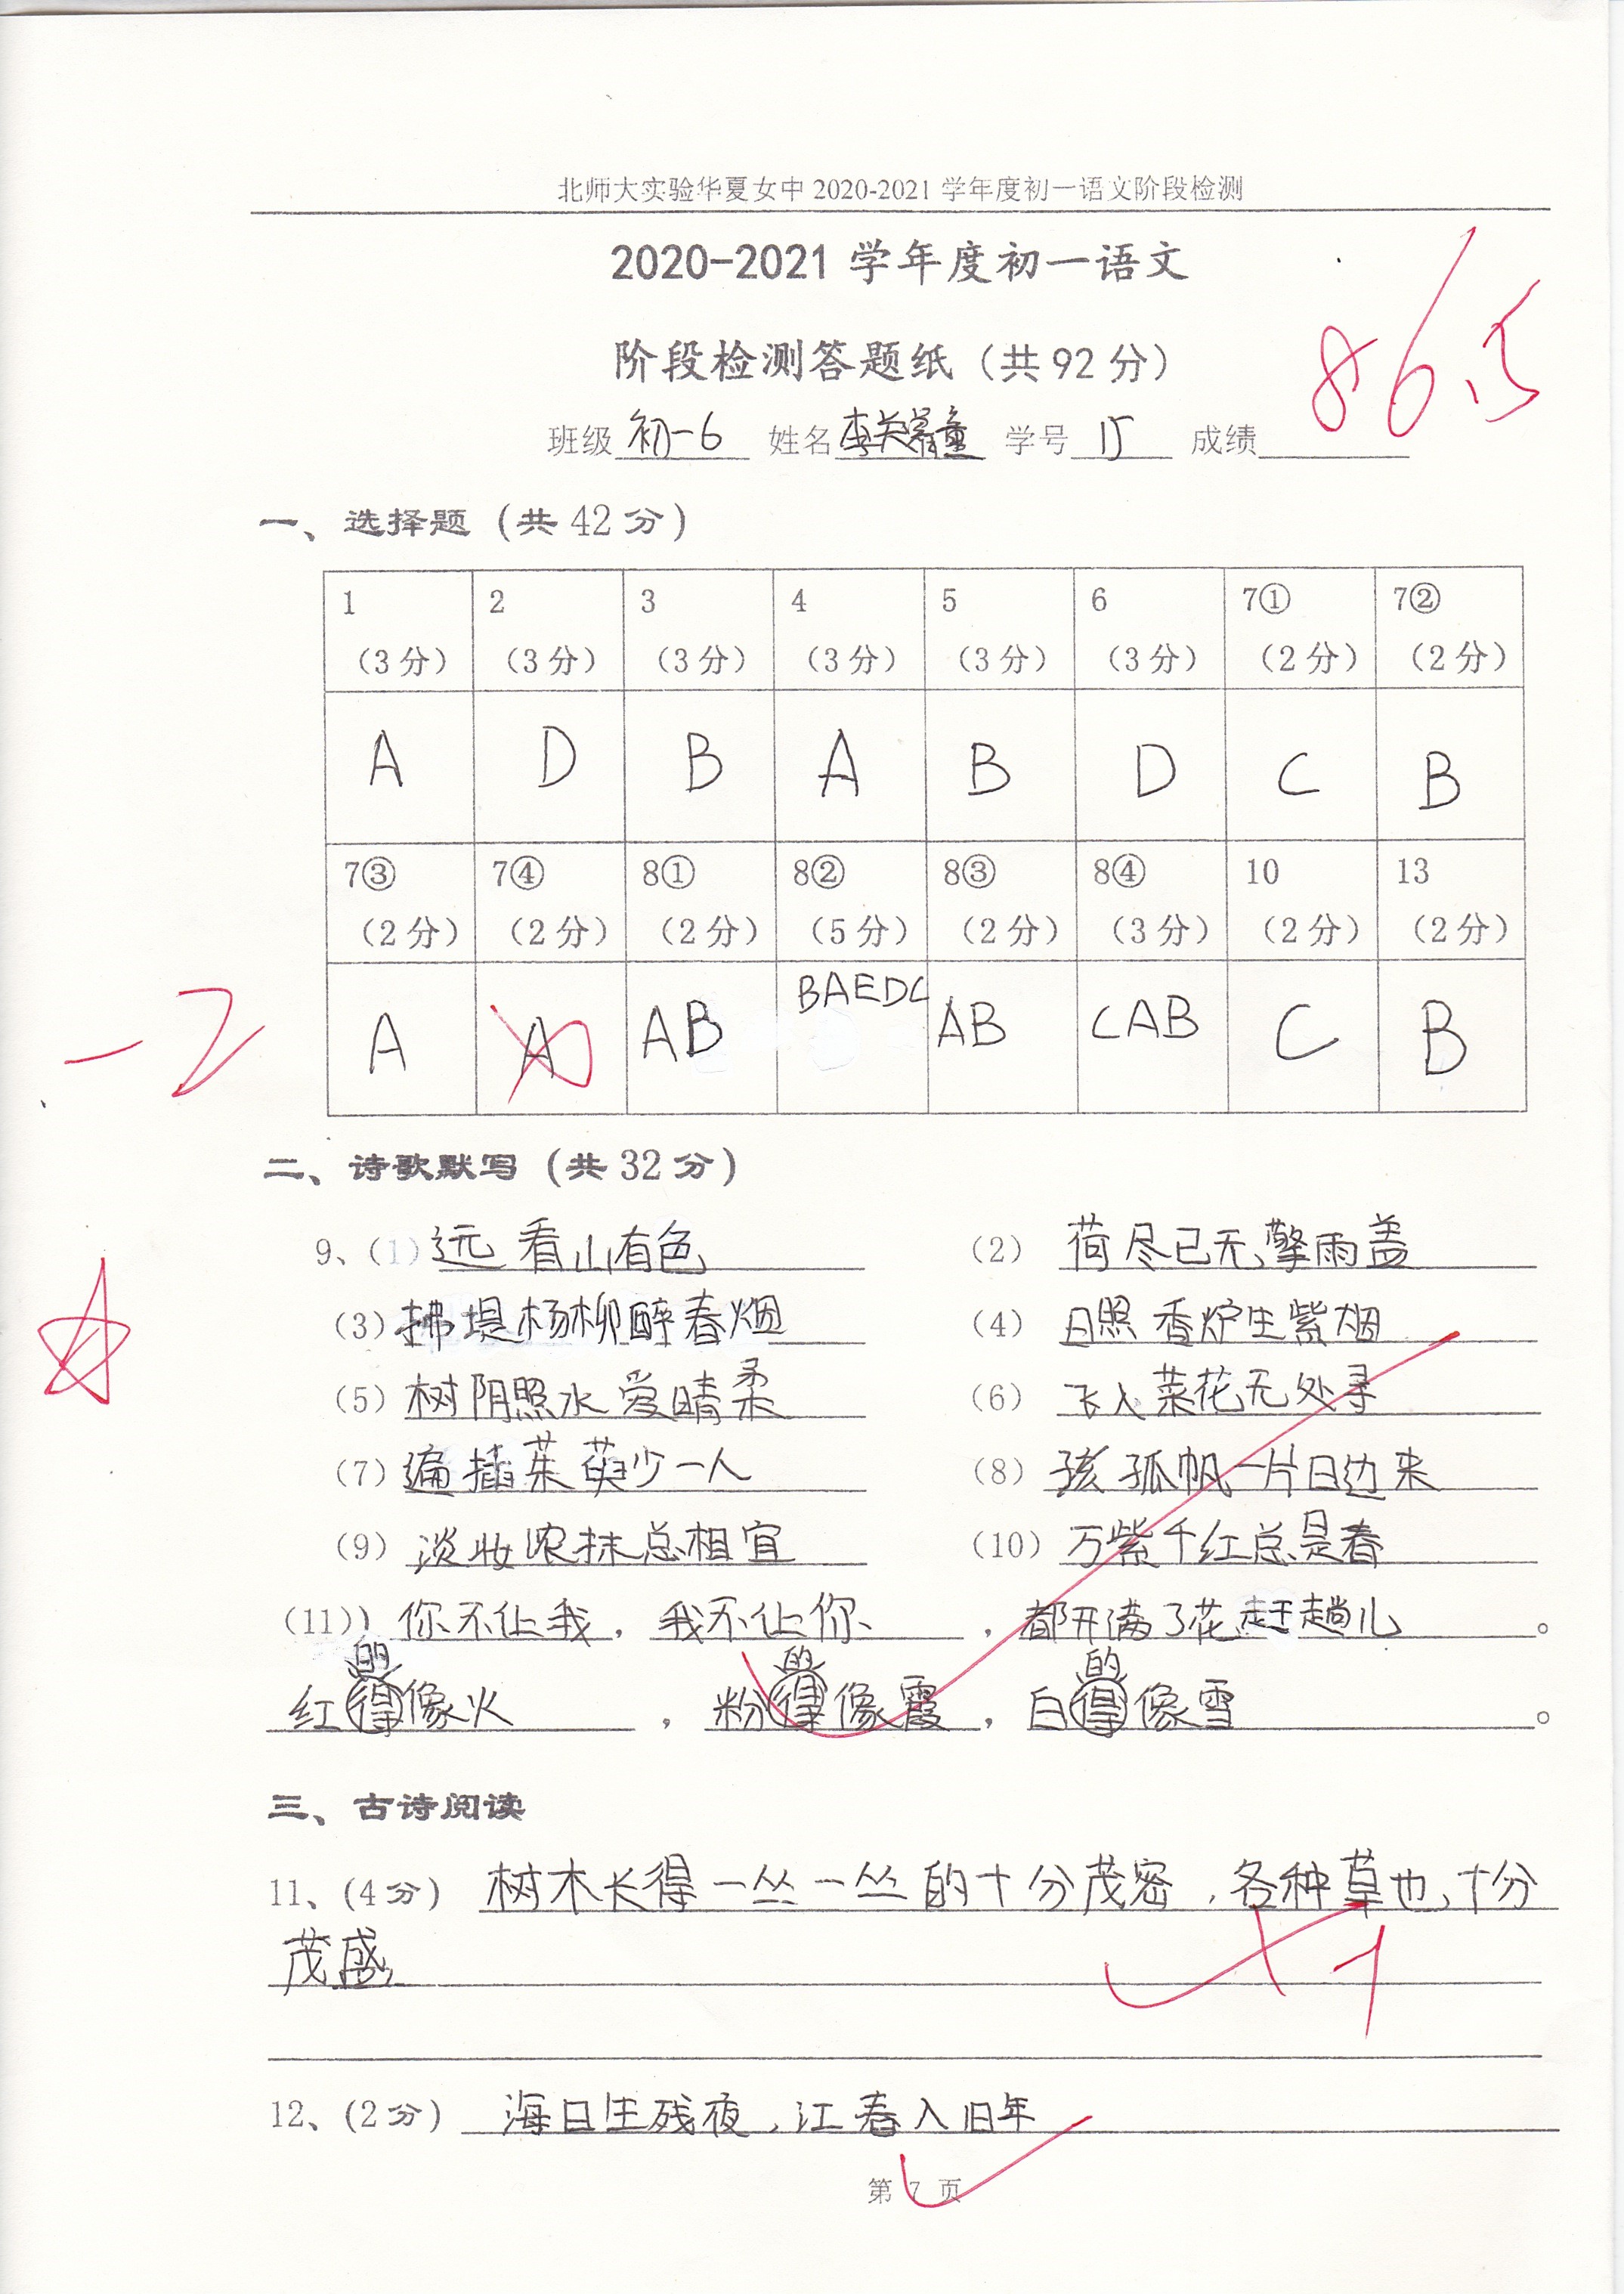 北师大实验华夏女中 2020-2021 学年度初一语文阶段检测
2020-2021 学年度初一语文
阶段检测答题纸（共 92 分）
86.5
班级 初一6 姓名 李 童 学号 15 成绩
一、选择题（共 42 分）
1 2 3 4 5 6 7① 7②
（3 分） （3 分） （3 分） （3 分） （3 分） （3 分） （2 分） （2 分）
A D B A B D C B
7③ 7④ 8① 8② 8③ 8④ 10 13
（2 分） （2 分） （2 分） （5 分） （2 分） （3 分） （2 分） （2 分）
-2 A A AB BAEDC AB CAB C B
二、诗歌默写（共 32 分）
9、（1）远看山有色 （2）荷尽已无擎雨盖
（3）拂堤杨柳醉春烟 （4）日照香炉生紫烟
（5）树阴照水爱晴柔 （6）飞入菜花无处寻
（7）遍插茱萸少一人 （8）孩孤帆一片日边来
（9）淡妆浓抹总相宜 （10）万紫千红总是春
（11)）你不让我，我不让你、，都开满了花赶趟儿。
的 的 的
红得像火，粉得像霞，白得像雪。
三、古诗阅读
11、（4 分）树木长得一丛一丛的十分茂密，各种草也十分
茂盛，
-1
12、（2 分）海日生残夜，江春入旧年
第 7 页